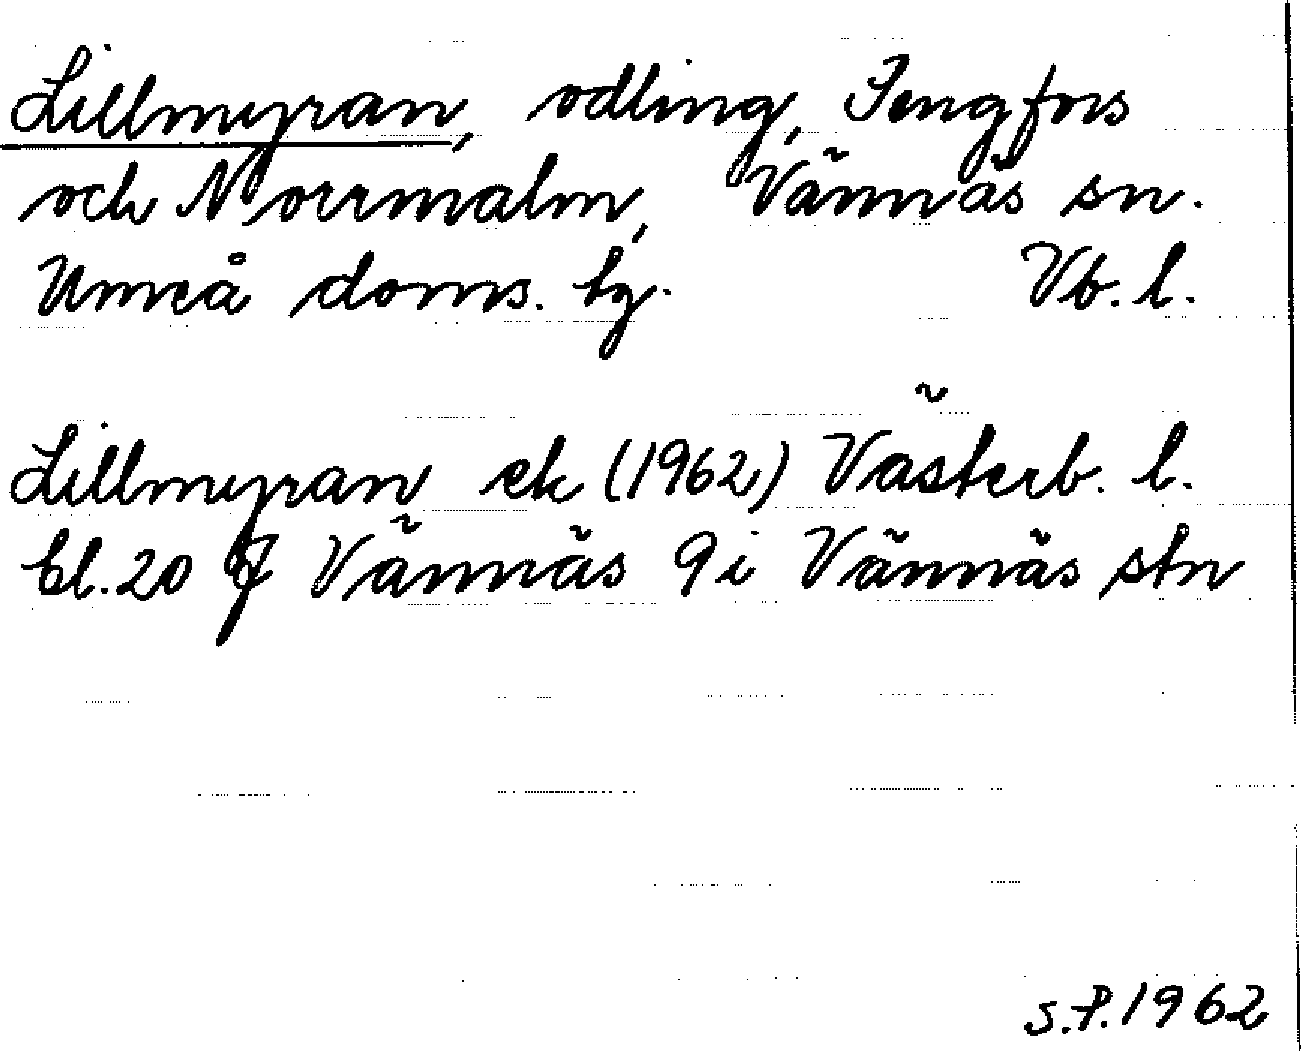 Lillmyran, odling, Jengfors
och Norrmalm, Vännäs sn.
Umeå doms. hg. Vb. l.
Lillmyran ek (1962) Västerb. l.
bl. 20 J Vännäs 9 i Vännäs stn
S.P. 1962